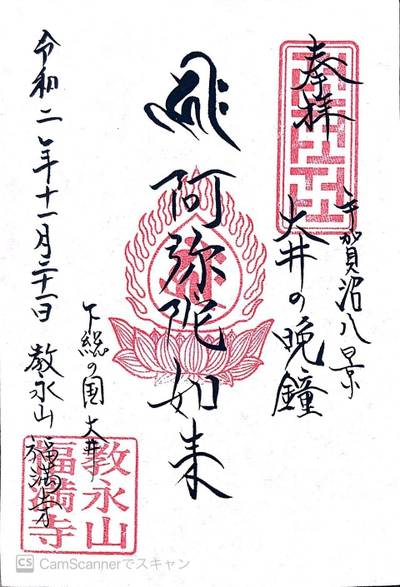 奉拝
手賀沼八景
大井の晩鐘
阿弥陀如来
下総の国 大井
教永山 福満寺
令和二年十一月二十一日
教永山
福満寺
CS CamScannerでスキャン